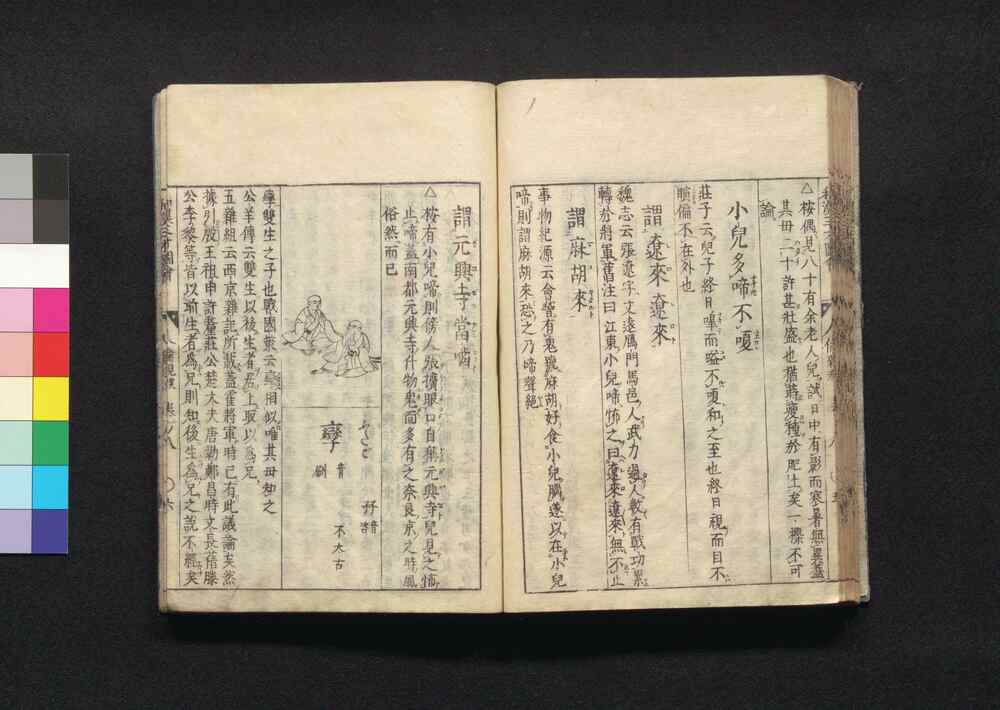 △按偶見八十有余老人兒試日中有影而寒暑無異蓋
其母二十許甚壯盛也猶蒔瘦種於肥土矣一槩不可
論
小兒多啼不嗄
莊子云兒子終日嘷而嗌不嗄和之至也終日視而目不
瞚偏不在外也
謂遼來遼來
魏志云張遼字文遠鴈門馬邑人武力過人數有戰功累
轉於將軍舊注曰江東小兒啼怖之曰遼來遼來無不止
謂麻胡來
事物紀源云會稽有鬼號麻胡好食小兒腦遂以在小兒
啼則謂麻胡來恐之乃啼聲絕
謂元興寺當噛
△按有小兒啼則傍人張擴眼口自稱元興寺兒見之怖
止啼蓋南都元興寺什物鬼面多有之奈良京之時風
俗然而已
ふたご
孿
音
孖
不太古
孿雙生之子也戰國策云孿相似唯其母知之
公羊傳云雙生以後生者居上取以為兄
五雜組云西京雜記所載蓋霍將軍時已有此議論矣然
據引殷王祖甲許釐莊公楚大夫唐勒鄭昌時文長蒨滕
公李黎等皆以前生者為兄則知後生為兄之說不經矣